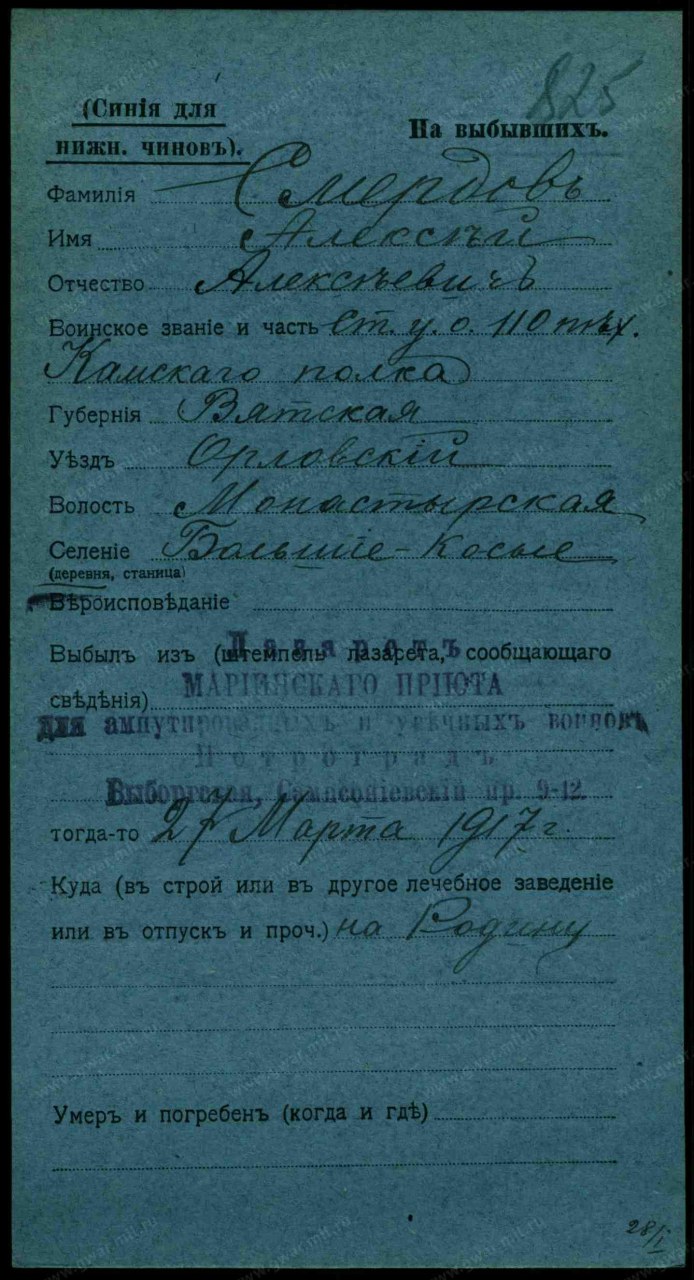 825
(Синія для
нижн. чиновъ).
На выбывшихъ.
Фамилія Смердовъ
Имя Алексѣй
Отчество Алексѣевичъ
Воинское званіе и часть Ст. у. о. 110 пѣх.
Камскаго полка
Губернія Вятская
Уѣздъ Орловскій
Волость Монастырская
Селеніе Большіе-Косые
(деревня, станица)
Вѣроисповѣданіе
Лазаретъ
Выбылъ изъ (штемпель лазарета, сообщающаго
МАРІИНСКАГО ПРІЮТА
свѣдѣнія)
для ампутированныхъ и увѣчныхъ воиновъ
Петроградъ
Выборгская, Сампсоніевскій пр. 9-12
тогда-то 27 Марта 1917 г.
Куда (въ строй или въ другое лечебное заведеніе
или въ отпускъ и проч.) на Родину
Умеръ и погребенъ (когда и гдѣ)
28/I
www.gwar.mil.ru